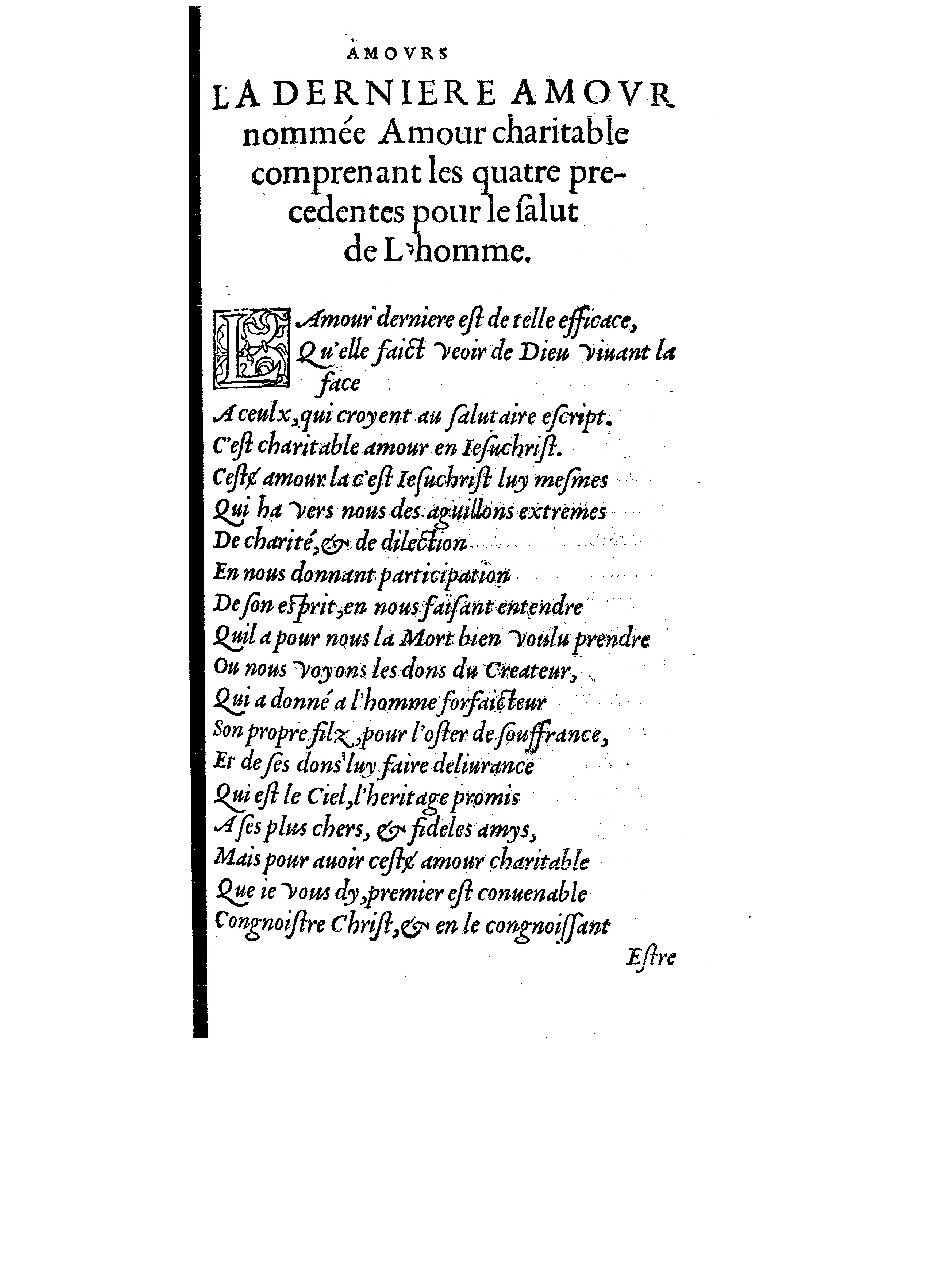 AMOVRS
LA DERNIERE AMOVR
nommée Amour charitable
comprenant les quatre pre-
cedentes pour le ſalut
de L'homme.
LAmour derniere eſt de telle efficace,
Qu'elle faict veoir de Dieu viuant la
face
A ceulx, qui croyent au ſalutaire eſcript.
C'eſt charitable amour en Ieſuchriſt.
Ceſtɇ amour la c'eſt Ieſuchriſt luy meſmes
Qui ha vers nous des aguillons extremes
De charité, & de dilection
En nous donnant participation
De ſon eſprit, en nous faiſant entendre
Quil a pour nous la Mort bien voulu prendre
Ou nous voyons les dons du Createur,
Qui a donné a l'homme forfaicteur
Son propre filz, pour l'oſter de ſouffrance,
Et de ſes dons luy faire deliurance
Qui eſt le Ciel, l'heritage promis
A ſes plus chers, & fideles amys,
Mais pour auoir ceſtɇ amour charitable
Que ie vous dy, premier eſt conuenable
Congnoiſtre Chriſt, & en le congnoiſſant
Eſtre